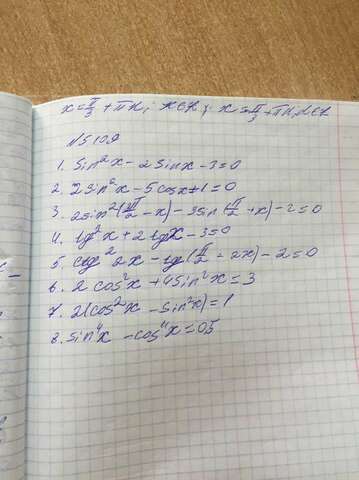 x = π/3 + πn; n∈Z; x = π/3 + πn, n∈Z
1. sin²x - 2 sinx - 3 = 0
2. 2sin²x - 5cosx + 1 = 0
3. 2sin²(π/2 - x) - 3sin(π/2 + x) - 2 = 0
4. tg²x + 2 tgx - 3 = 0
5. ctg²2x - tg(π/2 - 2x) - 2 = 0
6. 2 cos²x + 4sin²x = 3
7. 2(cos²x - sin²x) = 1
8. sin⁴x - cos⁴x = 0,5